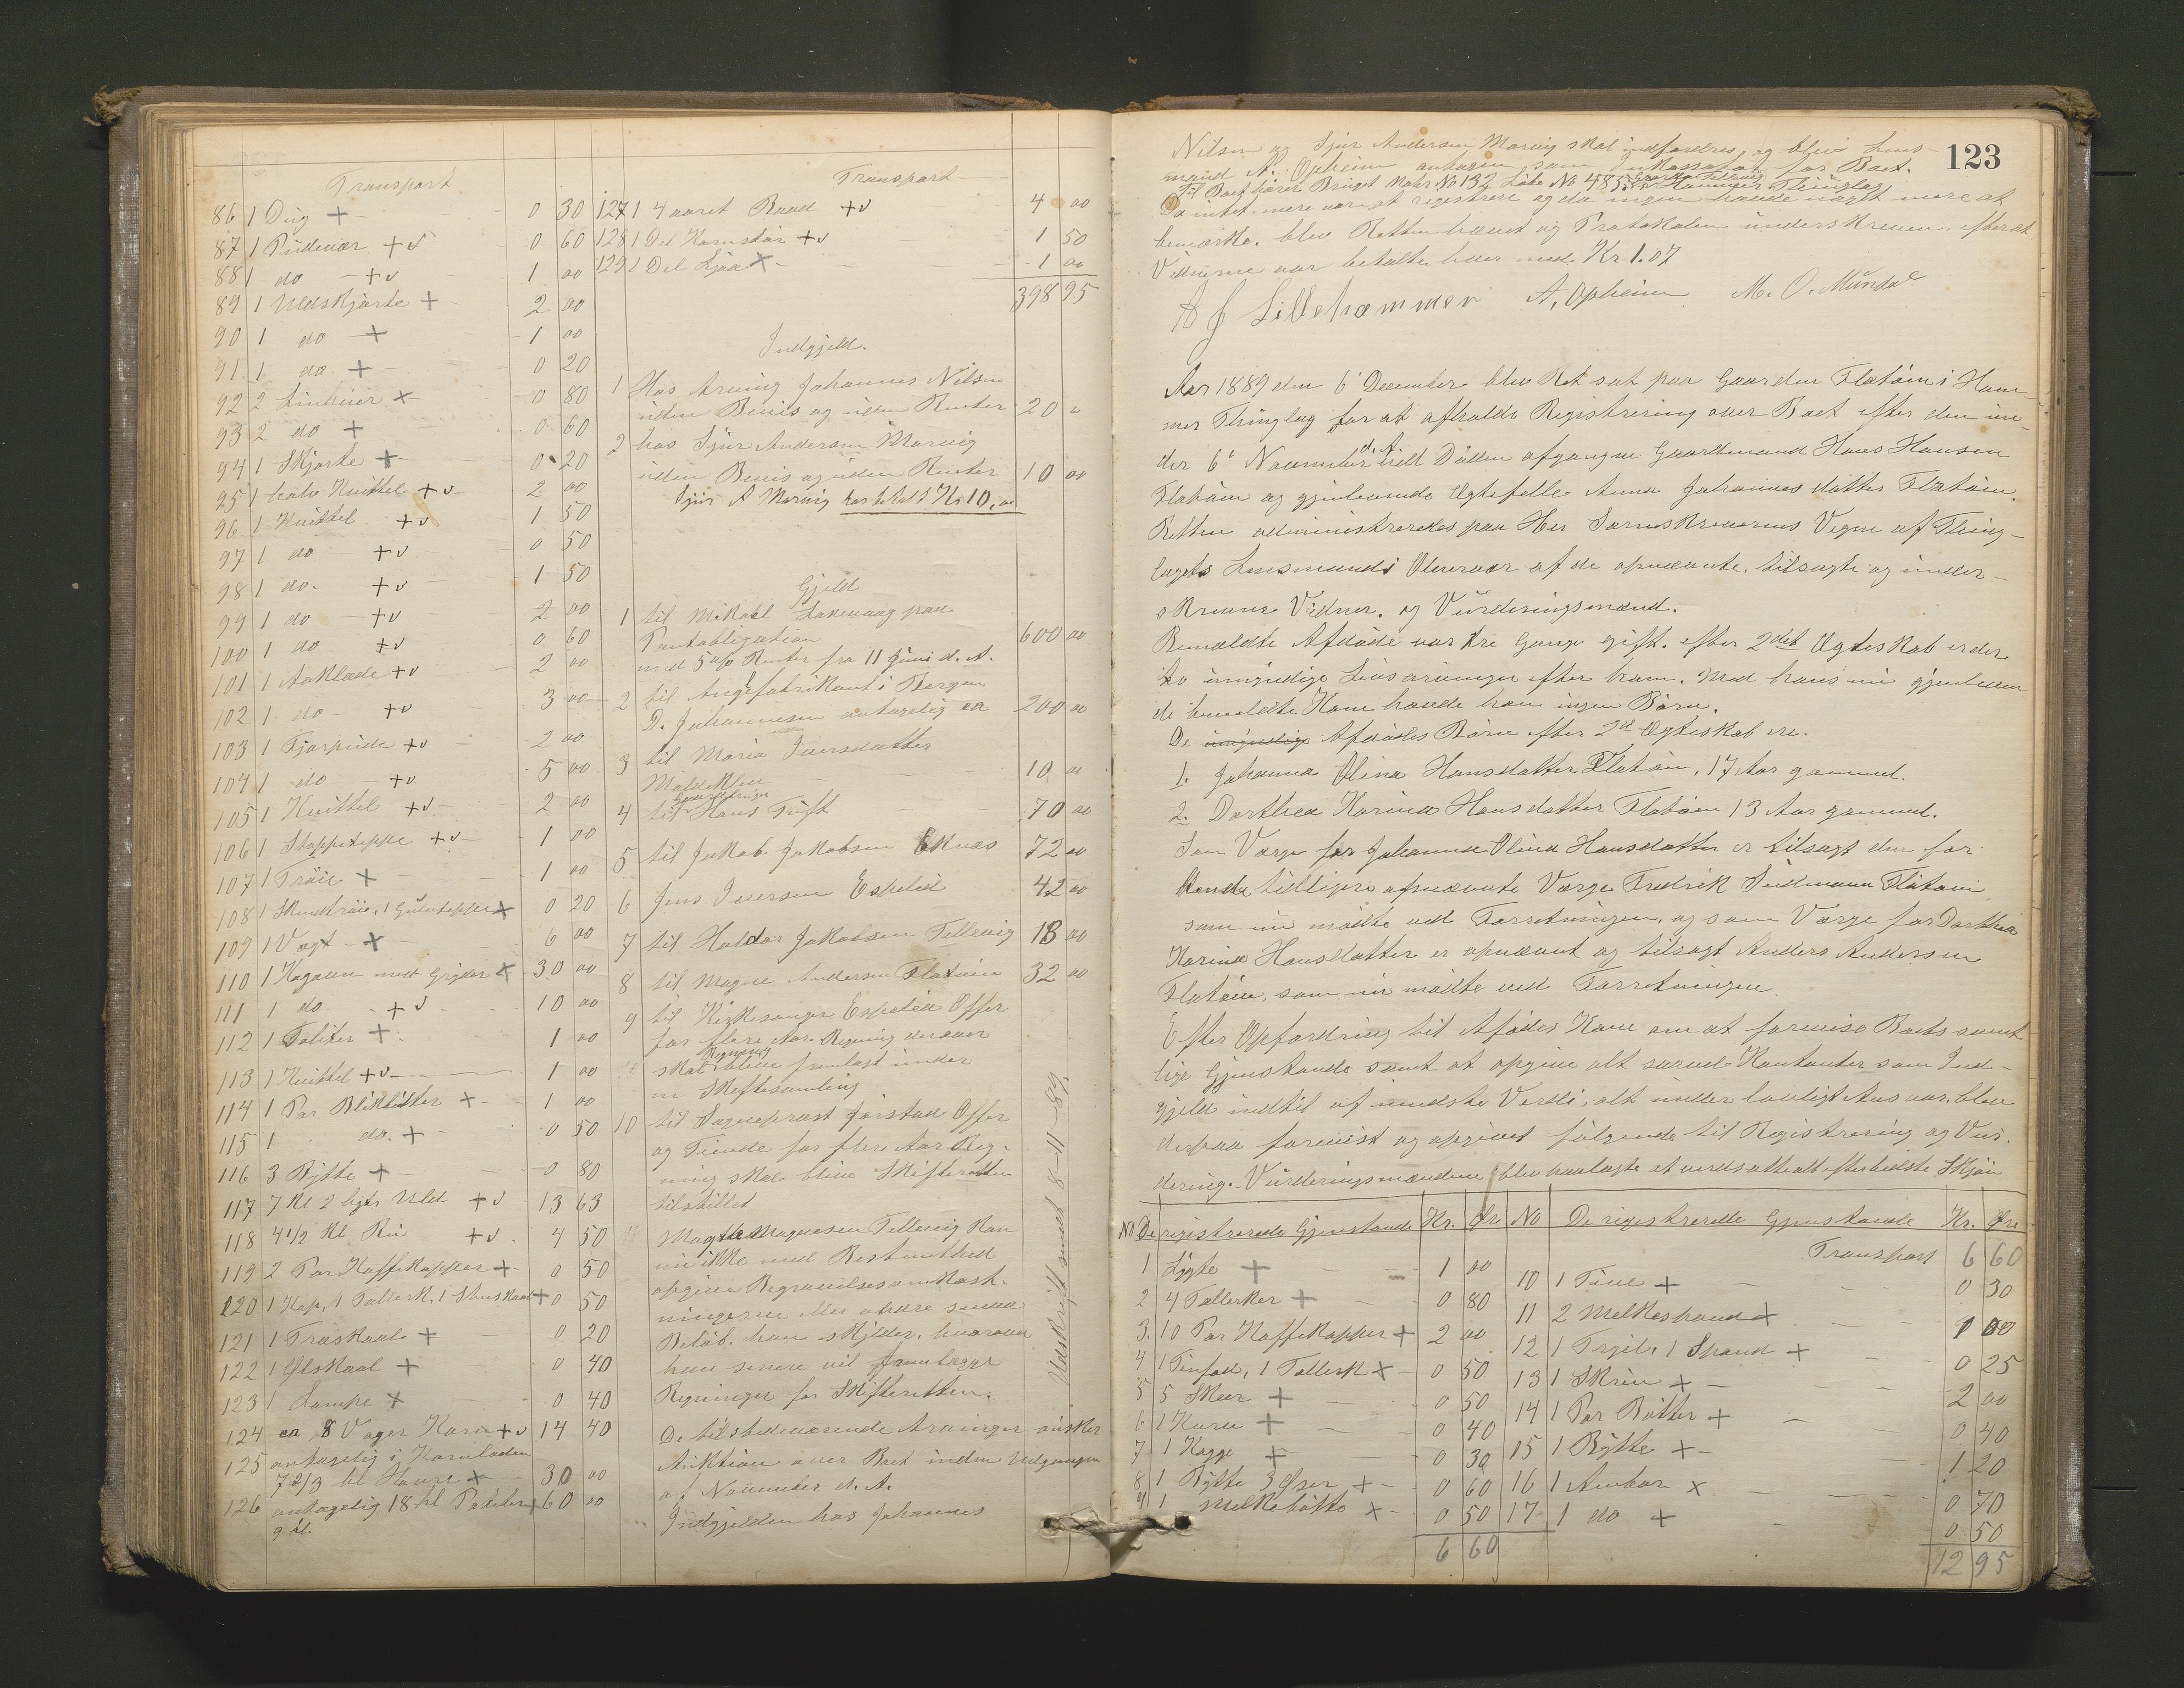 Transport
86 1 Dug + 0 30
87 1 Pudevær + v 0 60
88 1 do + v 1 00
89 1 Uldskjorte + 2 00
90 1 do + 1 00
91 1 do + 0 20
92 2 Linhuer x 0 80
93 2 do + 0 60
94 1 Skjorte + 0 20
95 1 halv Kvittel + v 2 00
96 1 Kvittel + v 1 50
97 1 do + v 0 50
98 1 do. + v 1 50
99 1 do + v 2 00
100 1 do + v 0 60
101 1 Aaklæde + v 2 00
102 1 do + v 3 00
103 1 Fjærpude + v 2 00
104 1 do + v 5 00
105 1 Kvittel + v 2 00
106 1 Stoppeteppe + v 1 00
107 1 Trøie + 1 00
108 1 Skindtrøie, 1 Gulvteppe + 0 20
109 1 Vægt + 6 00
110 1 Kagaun med Gryder + 30 00
111 1 do. + v 10 00
112 1 + 1 00
113 1 Kvittel + v 1 00
114 1 Par Blikbøtter + 1 00
115 1 do. + 0 50
116 3 Bytte + 0 80
117 7 Kl 2 Uld + v 13 63
118 4 1/2 Kl + v 4 50
119 2 Par Kaffekopper + 0 50
120 1 Kop, 1 Tallerk, 1 + 0 50
121 1 Træskaal + 0 20
122 1 Ølskaal + 0 40
123 1 Lampe + 0 40
124 ca 8 Voger Korn + v 14 40
125 antagelig i Kornladen
7 2/3 hl Havre + 30 00
126 antagelig 18 hl Poteter + 60 00
Transport
127 1 4 aaret Baad + v 4 00
128 1 Del + v 1 50
129 1 Del Ljaa + 1 00
398 95
Indgjeld.
1 Hos Arving Johannes Nilsen
uden Bevis og uden Renter 20 "
2 hos Sjur Andersen Morvig
uden Bevis og uden Renter 10 00
Sjur A Morvig har betalt Kr 10,00
Gjeld
1 til Mikael Laxevaag paa
Pantobligation
med 5 o/o Renter fra 11 Juni d. A. 600 00
2 til i Bergen
D. Johannesen antagelig ca 200 00
3 til Maria Iversdatter
10 00
4 til Hans Tuft 70 00
5 til Jakob Jakobsen Eknæs 72 00
6 Jens Iversen Espelid 42 00
7 til Haldor Jakobsen Tellevig 18 00
8 til Magne Andersen Flatøen 32 00
9 til Kirkesanger Espelid Offer
for flere Aar. Regning derover
skal blive fremlagt under
en Skiftesamling
10 til Sogneprest Jørstad Offer
og Tiende for flere Aar Reg-
ning skal blive Skifteretten
tilstillet
Magne Magnesen Tellevig kan
nu ikke med Bestemthed
opgive Begravelsesomkost-
ningerne eller andre smaa
Beløb. han skylder, hvorover
han senere vil fremlægge
Regninger for Skifteretten.
De tilstedeværende Arvinger ønsker
Auktion over Boet inden Udgangen
af November d. A.
Indgjelden hos Johannes
Udskrift sendt 8-11-89.
123
Nilsen og Sjur Andersen Morvig skal indfordres, og blev Lens-
mand A. Opheim antagen som Inkassator for Boet.
Til Boet hører Bruget Matr No 132 Løbe No 485 Hammers Thinglag
Da intet mere var at registrere og da ingen havde noget mere at
bemærke. blev Retten hævet og Protokolen underskreven, efterat
Vidnerne var betalte hver med Kr 1.07
A J Lillehammer A, Opheim M. O. Mundal
Aar 1889 den 6' December blev Ret sat paa Gaarden Flatøen i Ham-
mer Thinglag for at afholde Registrering over Boet efter den un-
der 6' November d. A. ved Døden afgangne Gaardmand Hans Hansen
Flatøen og gjenlevende Ægtefelle Anna Johannesdatter Flatøen.
Retten administreredes paa Her Sorenskriverens Vegne af Thing-
lagets Lensmand i Overvær af de opnævnte, tilsagte og under-
skrevne Vidner. og Vurderingsmænd.
Bemældte Afdøde var tre Gange gift. efter 2det Ægteskab er der
to umyndige Livsarvinger efter ham. Med hans nu gjenleven-
de bemeldte Kone havde han ingen Børn.
De umyndige Afdødes Børn efter 2det Ægteskab ere.
1. Johanna Olina Hansdatter Flatøen, 17 Aar gammel.
2. Dorthea Karina Hansdatter Flatøen 13 Aar gammel.
Som Værge for Johanna Olina Hansdatter er tilsagt den for
Hende tidligere opnævnte Værge Fredrik Flatøen
som nu mødte ved Forretningen, og som Værge for Dorthea
Karina Hansdatter er opnævnt og tilsagt Anders Andersen
Flatøen, som nu mødte ved Forretningen.
Efter Opfordring til Afdødes Kone om at forevise Boets samt-
lige Gjenstande samt at opgive alt saavel Kontanter som Ind-
gjeld indtil af mindste Verdi, alt under lovligt Ansvar, blev
derpaa forevist og opgivet følgende til Registrering og Vur-
dering. Vurderingsmændene blev paalagte at verdsætte alt efter bedste Skjøn
No De registrerede Gjenstande Kr. Øre No De registrerede Gjenstande Kr. Øre
1 Lygte + 1 00
2 4 Tallerker + 0 80
3. 10 Par Kaffekopper + 2 00
4 1 Tinfad, 1 Tallerk + 0 50
5 5 Skeer + 0 50
6 1 Kurv + 0 40
7 1 Kagge + 0 30
8 1 Bytte 3 Øser + 0 60
9 1 Melkebøtte + 0 50
6 60
Transport 6 60
10 1 Tine + 0 30
11 2 Melkespand + 1 00
12 1 Trygil, 1 Spand + 0 25
13 1 Skrin + 2 00
14 1 Par Bøtter + 0 40
15 1 Bytte + 1 20
16 1 Ambar x 0 70
17 1 do + 0 50
12 95